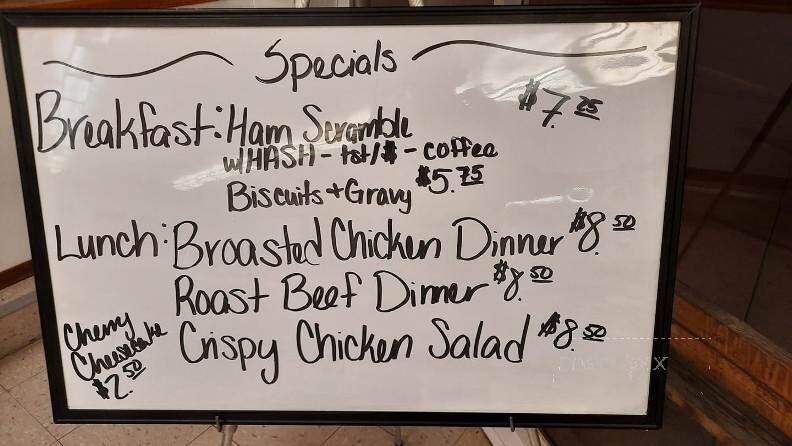 Specials
Breakfast: Ham Scramble $7.25
w/HASH - tst/$ - coffee
Biscuits + Gravy $5.75
Lunch: Broasted Chicken Dinner $8.50
Roast Beef Dinner $8.50
Crispy Chicken Salad $8.50
Cherry
Cheesecake
$2.50